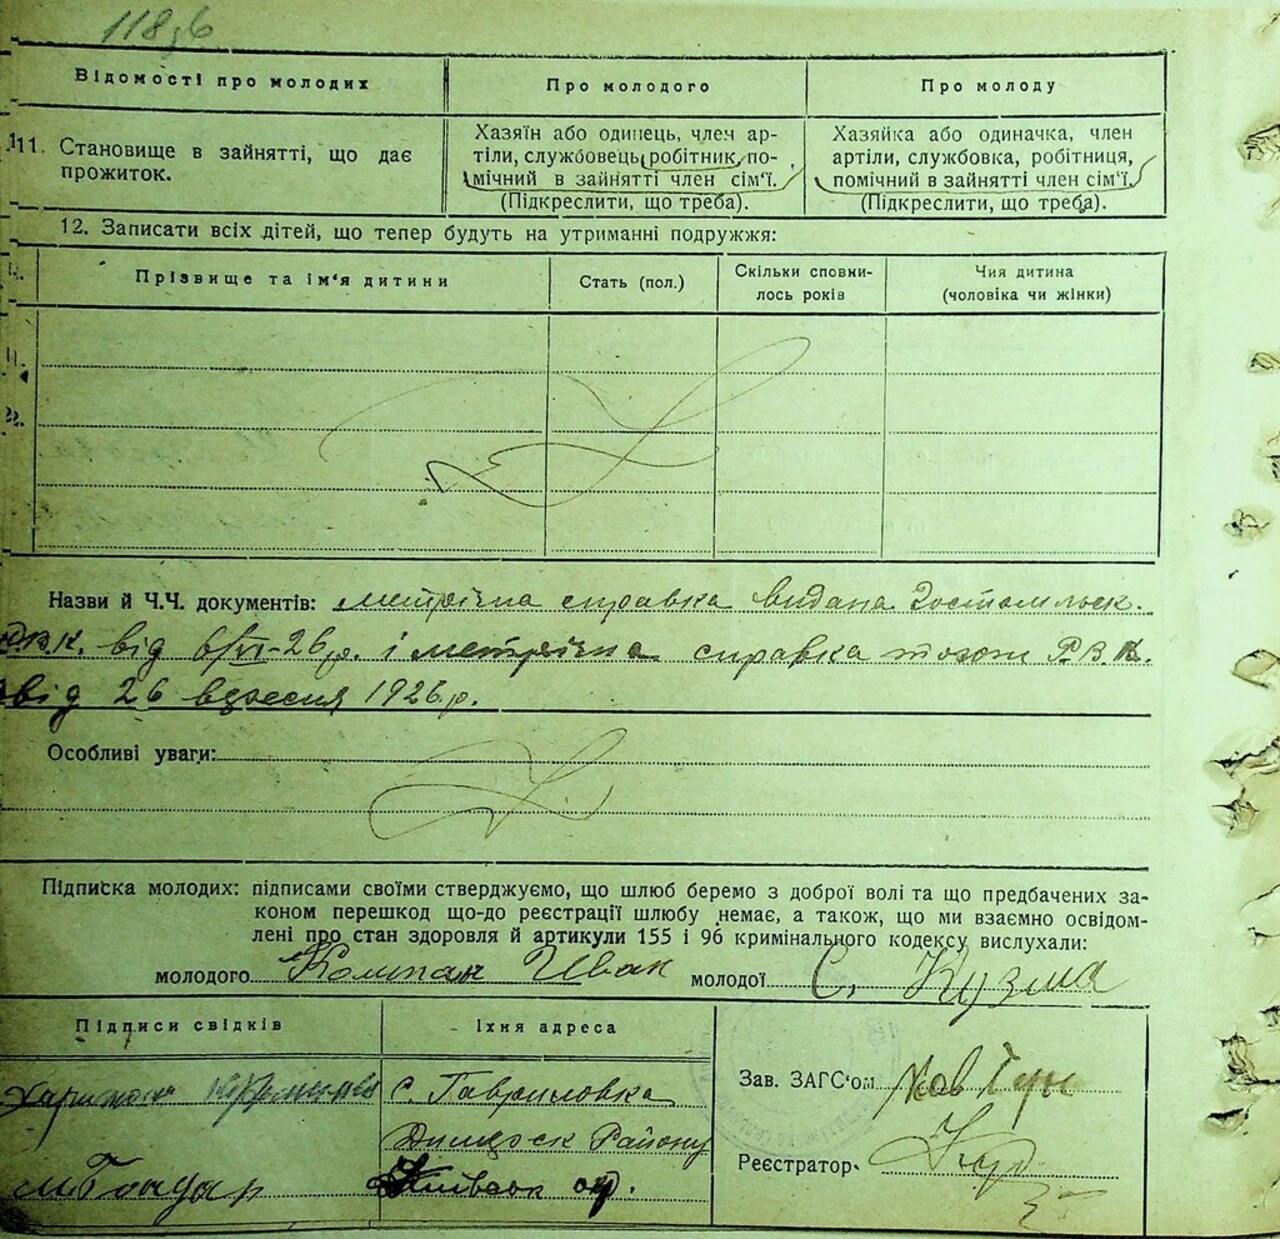 118зб
Відомості про молодих
Про молодого
Про молоду
11. Становище в зайнятті, що дає
прожиток.
Хазяїн або одинець, член ар-
тіли, службовець, робітник, по-
мічний в зайнятті член сім'ї.
(Підкреслити, що треба).
Хазяйка або одиначка, член
артіли, службовка, робітниця,
помічний в зайнятті член сім'ї.
(Підкреслити, що треба).
12. Записати всіх дітей, що тепер будуть на утриманні подружжя:
Прізвище та ім'я дитини
Стать (пол.)
Скільки сповни-
лось років
Чия дитина
(чоловіка чи жінки)
Назви й Ч.Ч. документів: метрічна справка видана Гостомльск.
Р.В.К. від 6/VI-26 р. і метрічна справка тогож Р.В.К.
від 26 вересня 1926 р.
Особливі уваги:
Підписка молодих: підписами своїми стверджуємо, що шлюб беремо з доброї волі та що предбачених за-
коном перешкод що-до реєстрації шлюбу немає, а також, що ми взаємно освідом-
лені про стан здоровля й артикули 155 і 96 кримінального кодексу вислухали:
молодого Колпак Іван молодої С. Кузма
Підписи свідків
Їхня адреса
С. Гавриловка
Димерск Району
Київськ окр.
М Гондар
Зав. ЗАГС'ом Ковтун
Реєстратор